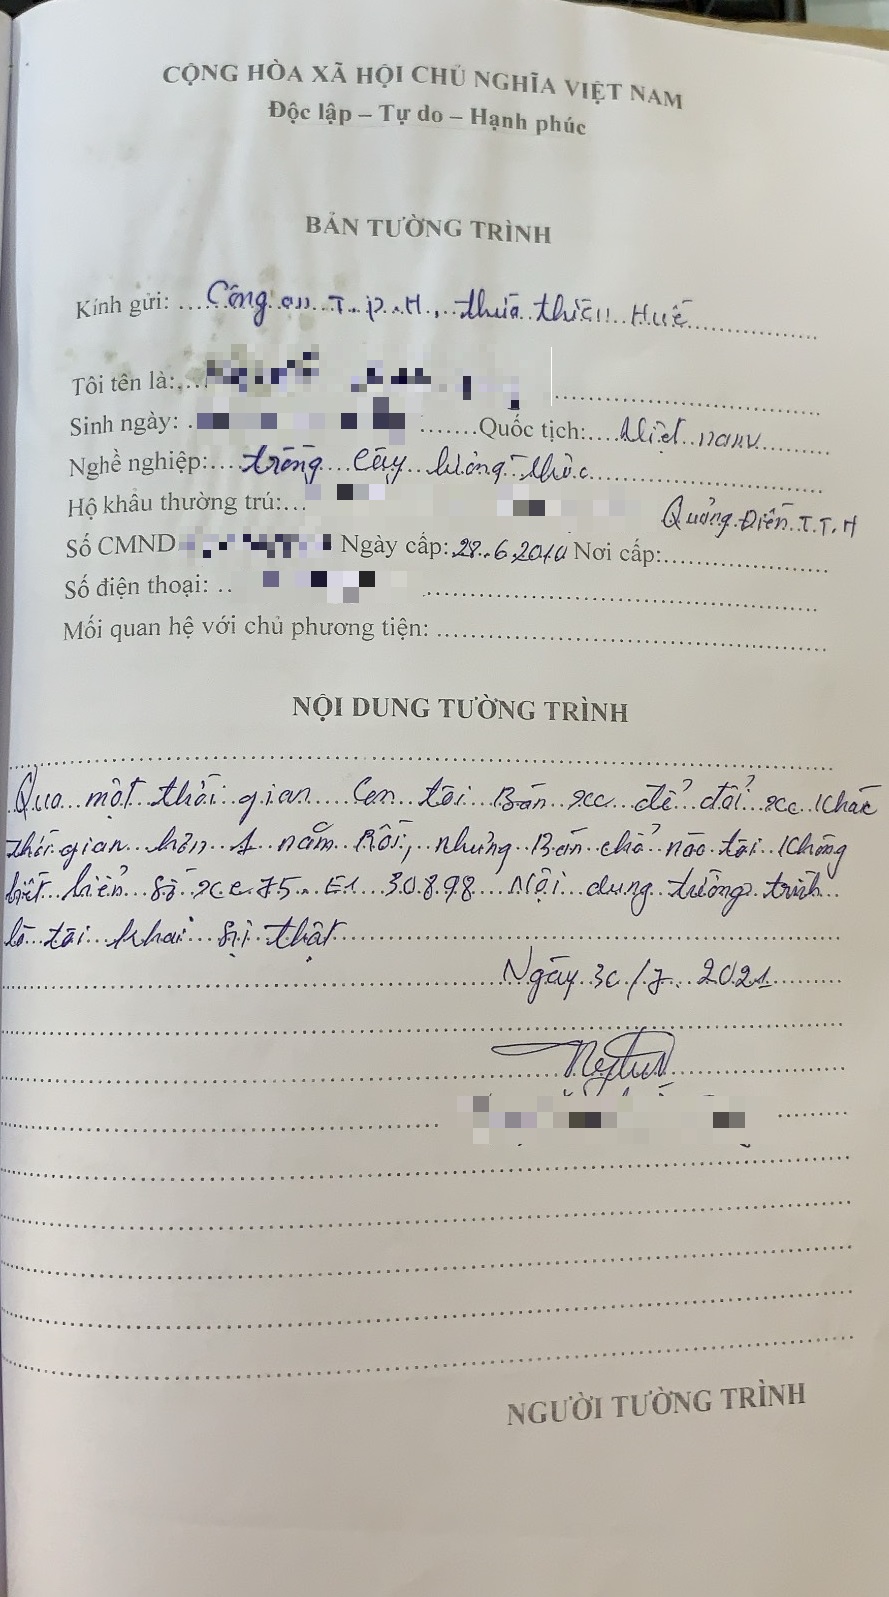 CỘNG HÒA XÃ HỘI CHỦ NGHĨA VIỆT NAM
Độc lập – Tự do – Hạnh phúc
BẢN TƯỜNG TRÌNH
Kính gửi: Công an T.P.H, thừa thiên Huế
Tôi tên là:
Sinh ngày: Quốc tịch: Việt nam
Nghề nghiệp: trồng cây lương thực
Hộ khẩu thường trú: Quảng Điền T.T.H
Số CMND Ngày cấp: 28.6.2010 Nơi cấp:
Số điện thoại:
Mối quan hệ với chủ phương tiện:
NỘI DUNG TƯỜNG TRÌNH
Qua một thời gian Con tôi Bán xe để đổi xe khác
thời gian hơn 1 năm Rồi, nhưng Bán chổ nào tôi không
biết biển số xe 75. E1 308.98 Nội dung tường trình
là tôi khai sự thật
Ngày 30/7.2021
NGƯỜI TƯỜNG TRÌNH